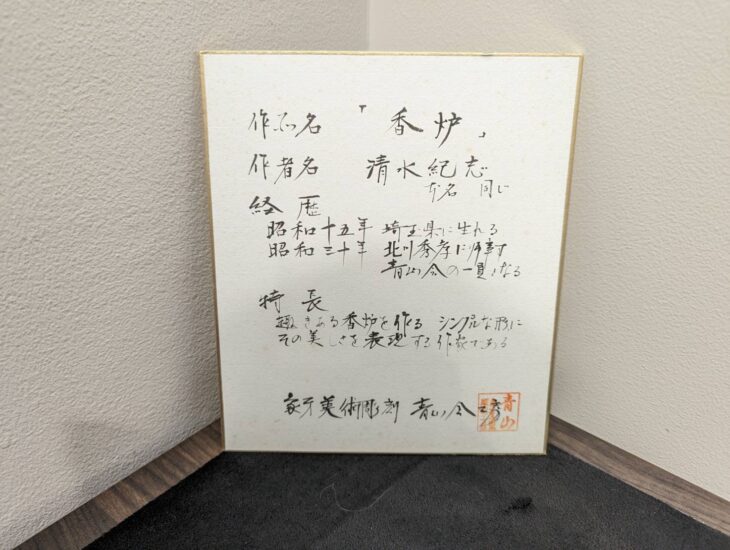 作品名 「香炉」
作者名 清水紀志
本名 同じ
経歴
昭和十五年 埼玉県に生れる
昭和三十年 北川秀孝に師事す
青山会の一員となる
特長
趣きある香炉を作る シンプルな形に
その美しさを表現する作家である
象牙美術彫刻 青山会 工房
青山